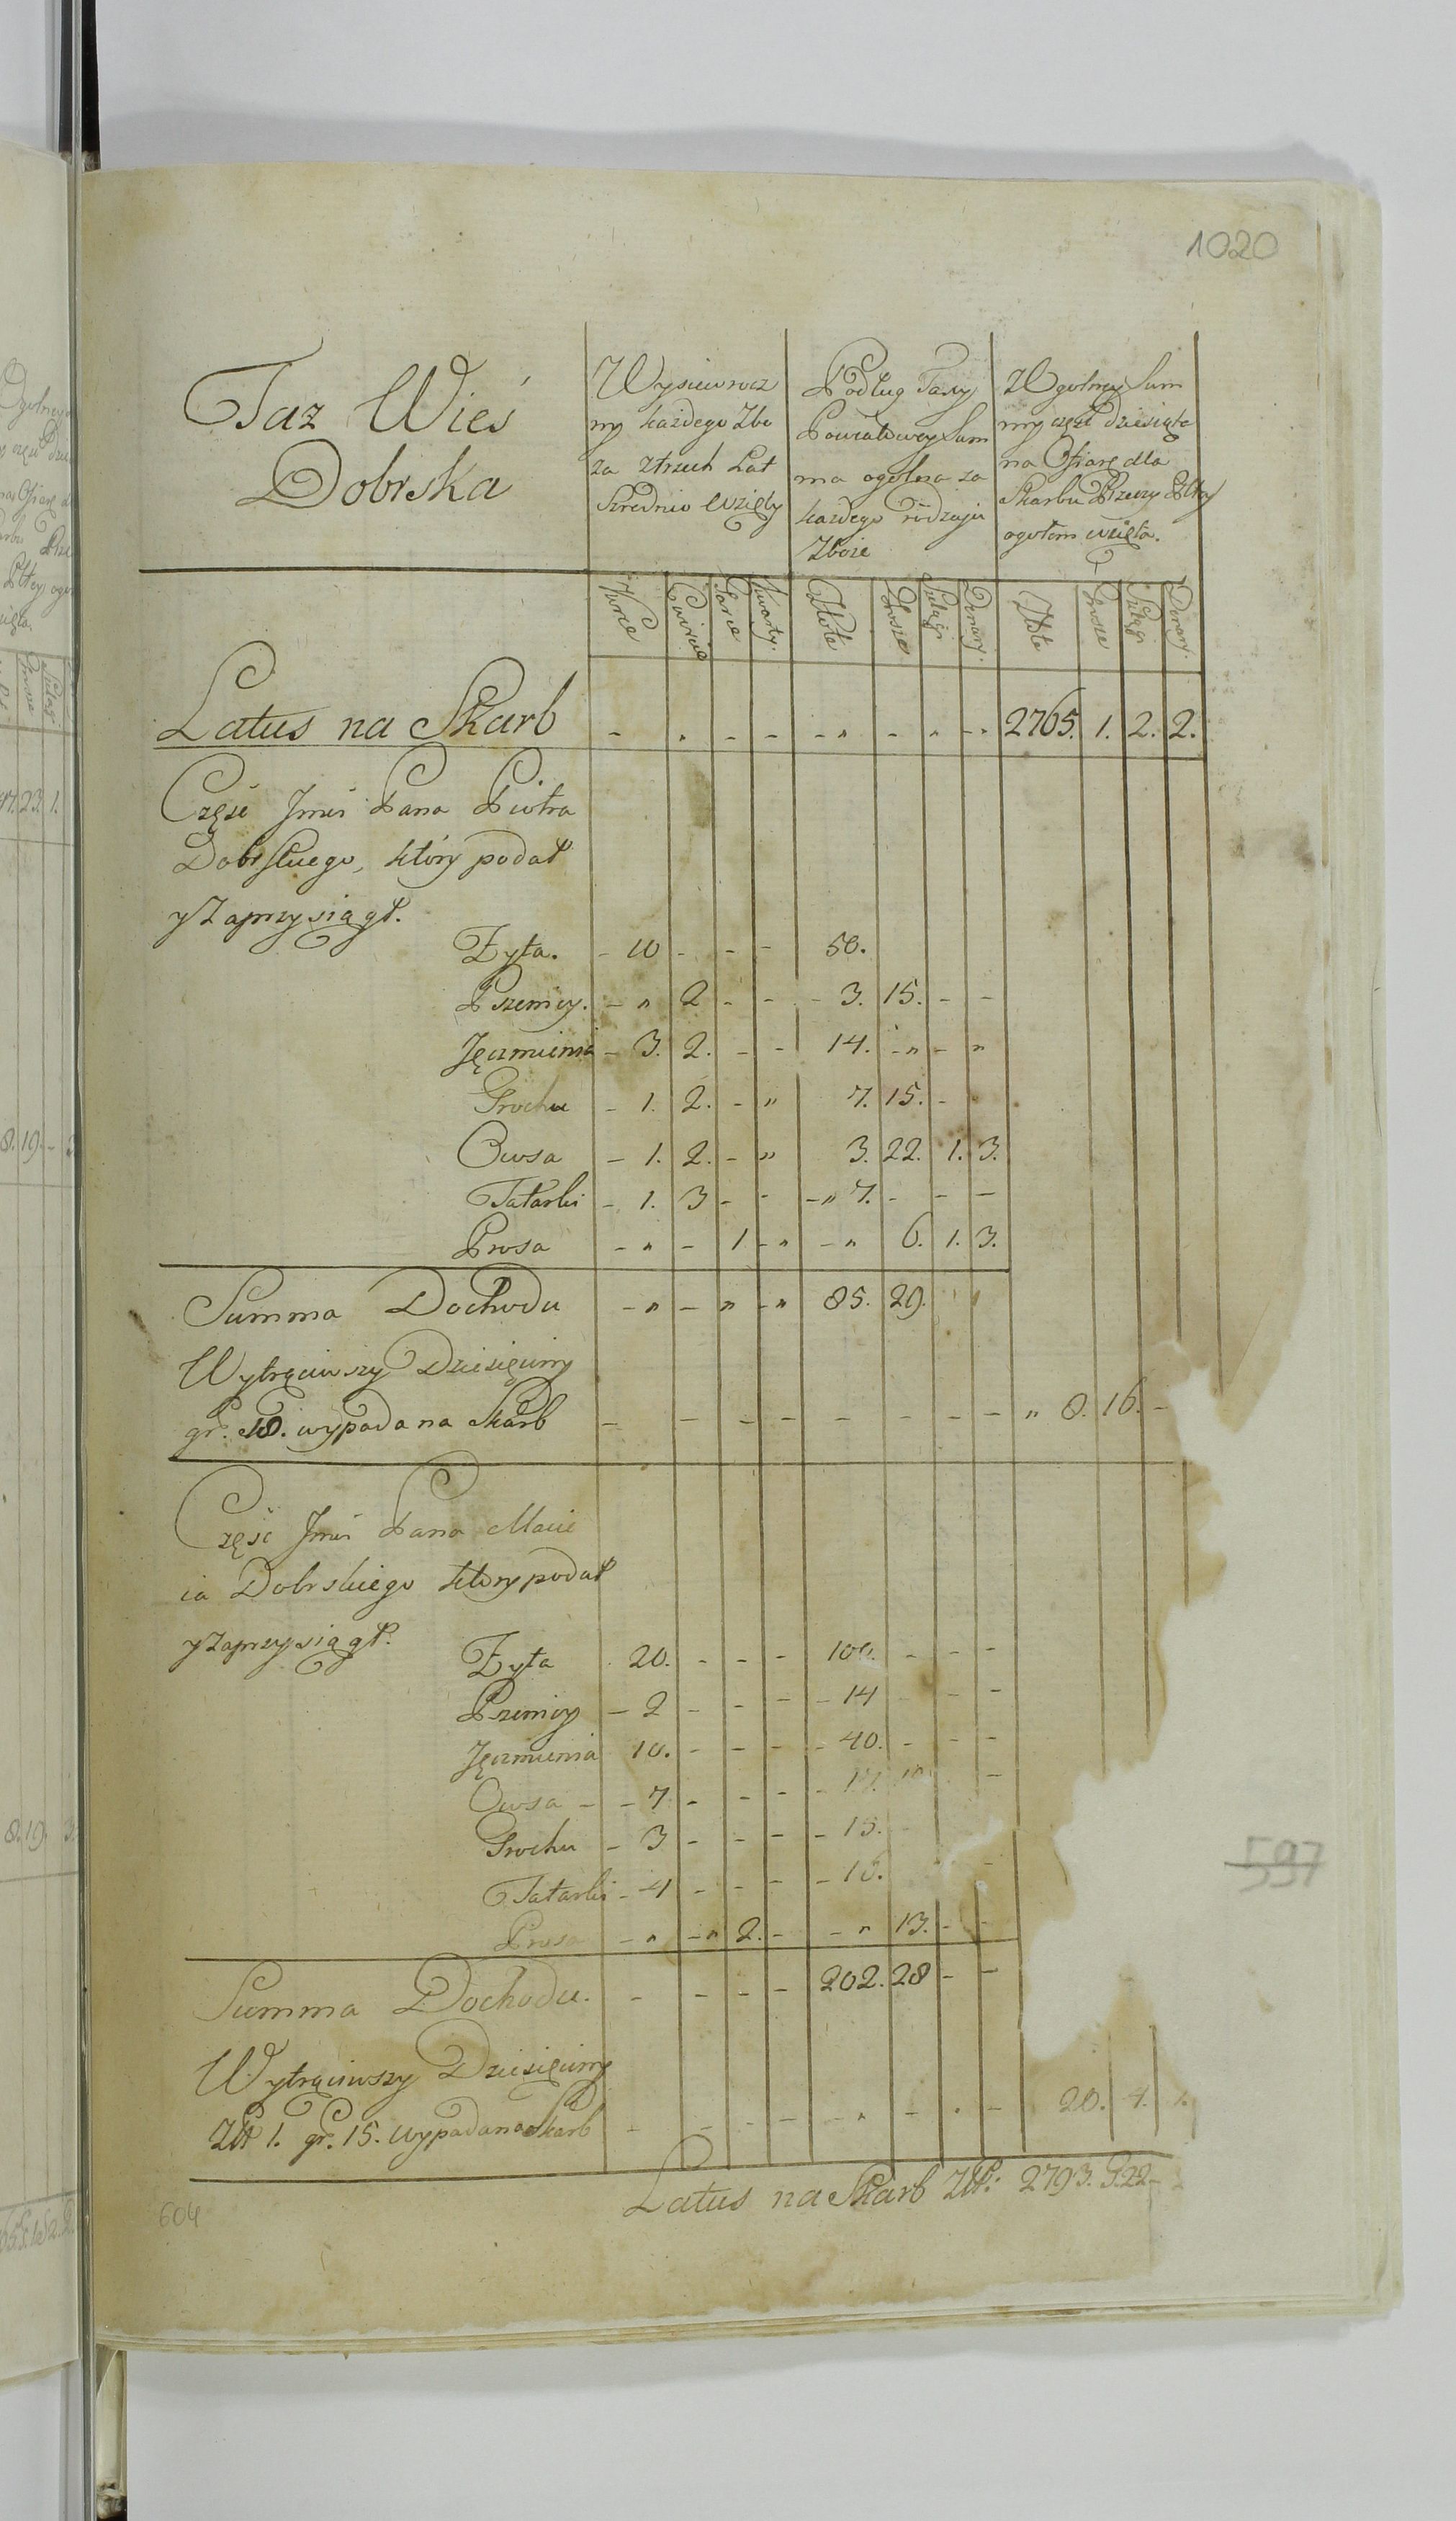 1020
Taz Wieś
Dobrska
Wysiew rocz
ny każdego Zbo
za ztrzech Lat
Srednio wzięty
Podług Taxy
Powiatowey Sum
ma ogolna za
każdego rodzaju
Zboże
Z Ogolney Sum
my częśc dziesiąta
na Ofiarę dla
Skarbu Rzeczy Pltey
ogołem wzięta.
Korce Cwircie Garce Kwarty. Złote Grosze Szelągi Denary. Złote Grosze Szelągi Denary.
Latus na Skarb - „ - - - „ - „ - „ 2765. 1. 2. 2.
Częśc Jmci Pana Piotra
Dobrskiego, który podał
y Zaprzysiągł.
Zyta. - 10 - - - 50.
Pszenicy. - „ 2 - - - 3. 15. - -
Jęczmienia - 3. 2. - - 14. - „ - „
Grochu - 1. 2. - „ 7. 15. -
Owsa - 1. 2. - „ 3. 22. 1. 3.
Tatarki - 1. 3 - - - „ 7. - - -
Prosa - „ - 1 - „ - „ 6. 1. 3.
Summa Dochodu - „ - „ - „ 85. 29.
Wytrąciwszy Dziesięciny
gr. 18. wypada na Skarb - - - - - - - - „ 8. 16. -
Częśc Jmci Pana Macie
ia Dobrskiego ktory podał
y Zaprzysiągł.
Zyta 20. - - - 100. - - -
Pszenicy - 2 - - - - 14 - -
Jęczmienia 10. - - - - 40. - - -
Owsa - - 7 - - - - 17. -
Grochu - 3 - - - - 15.
Tatarki - 4 - - - - 16. -
Prosa - „ - „ 2. - - „ 13. - -
Summa Dochodu. - - - - 202. 28 - -
Wytrąciwszy Dziesięciny
Złt 1. gr. 15. wypada na Skarb - - - - - „ - „ - 20. 4. 1.
Latus na Skarb Złt: 2793. G. 22 -
604
597